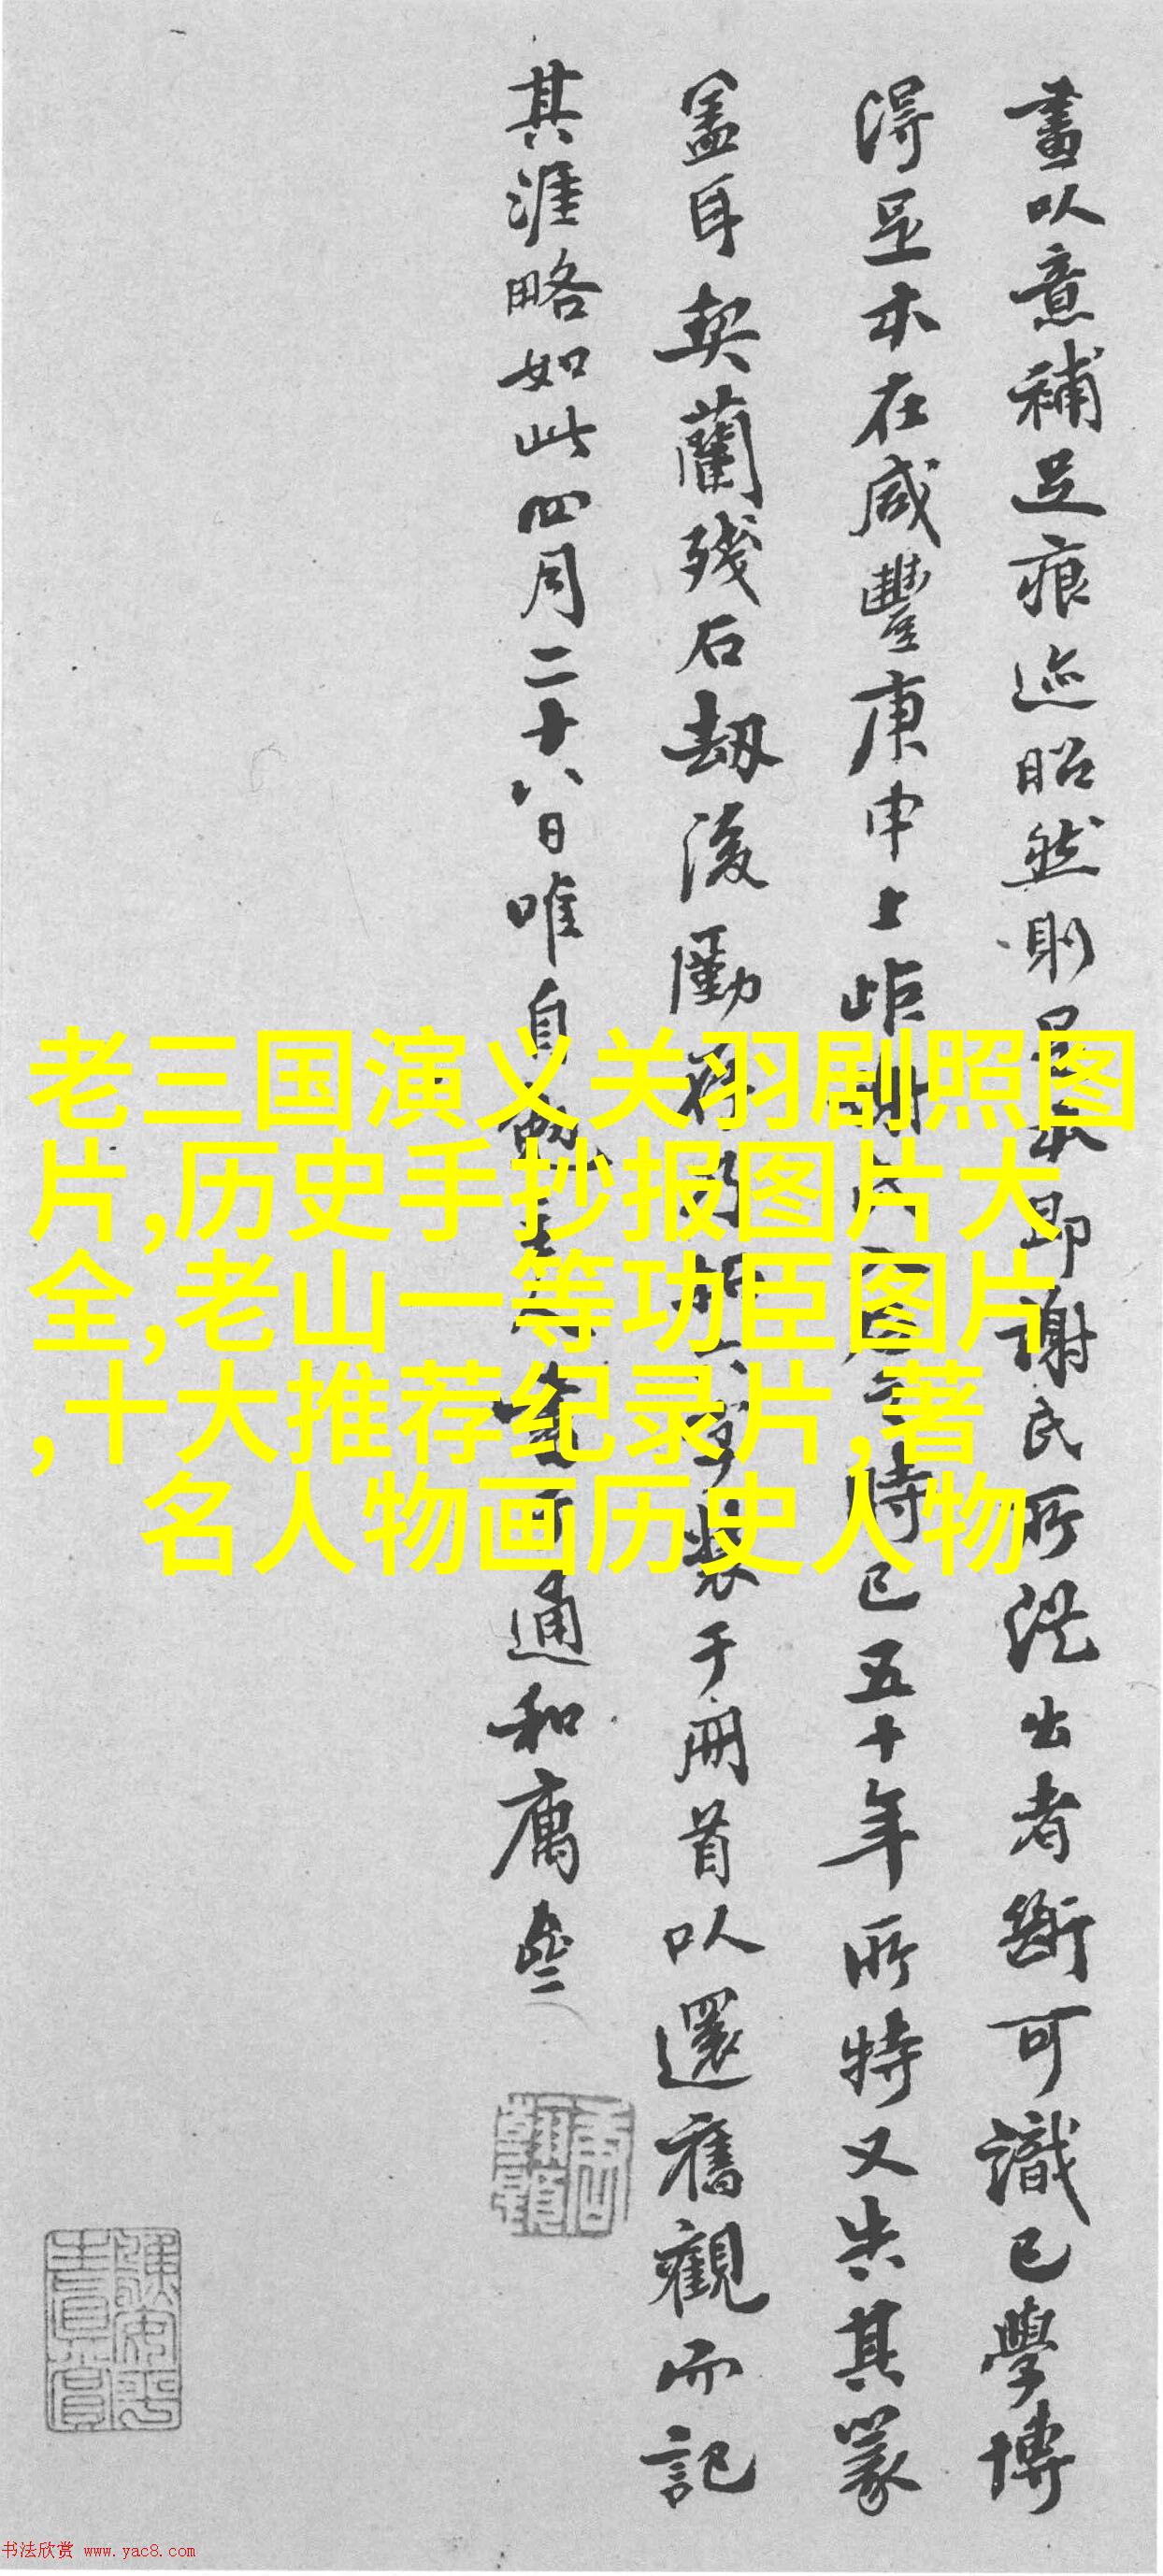 畫以意補足痕迹昭然則是本即謝氏所從出者衡可識已學博
得足本在咸豐庚申上距謝時已五十年所特又失其篆
蓋耳契蘭殘石劫後存字裝于册首以還舊觀而記
其涯略如此四月二十八日唯自通和唐
老三国演义关羽剧照图
片,历史手抄报图片大
全,老山一等功臣图片
,十大推荐纪录片,著
名人物画历史人物
书法欣赏 www.yac8.com